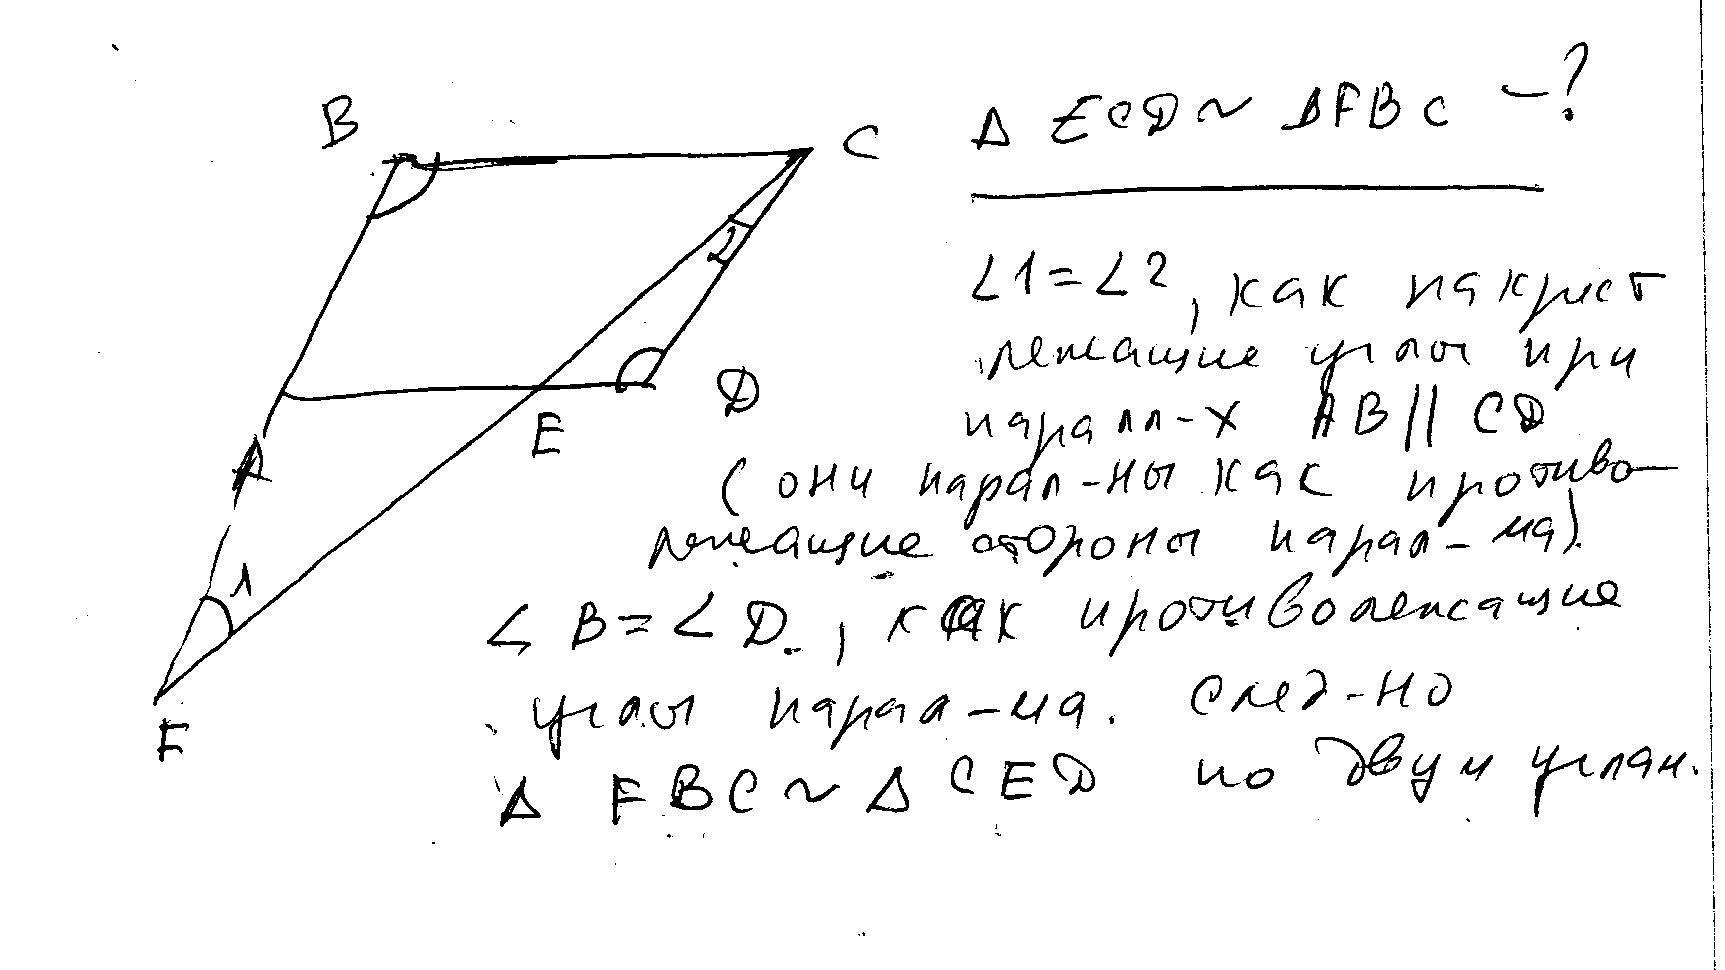 B
C
Δ ECD ~ ΔFBC - ?
2
∠1=∠2, как накрест
лежащие углы при
D
паралл-х AB || CD
E
A
(они парал-ны как противо-
лежащие стороны парал-ма).
1
∠B=∠D, как противолежащие
углы парал-ма. след-но
F
Δ FBC ~ Δ CED по двум углам.